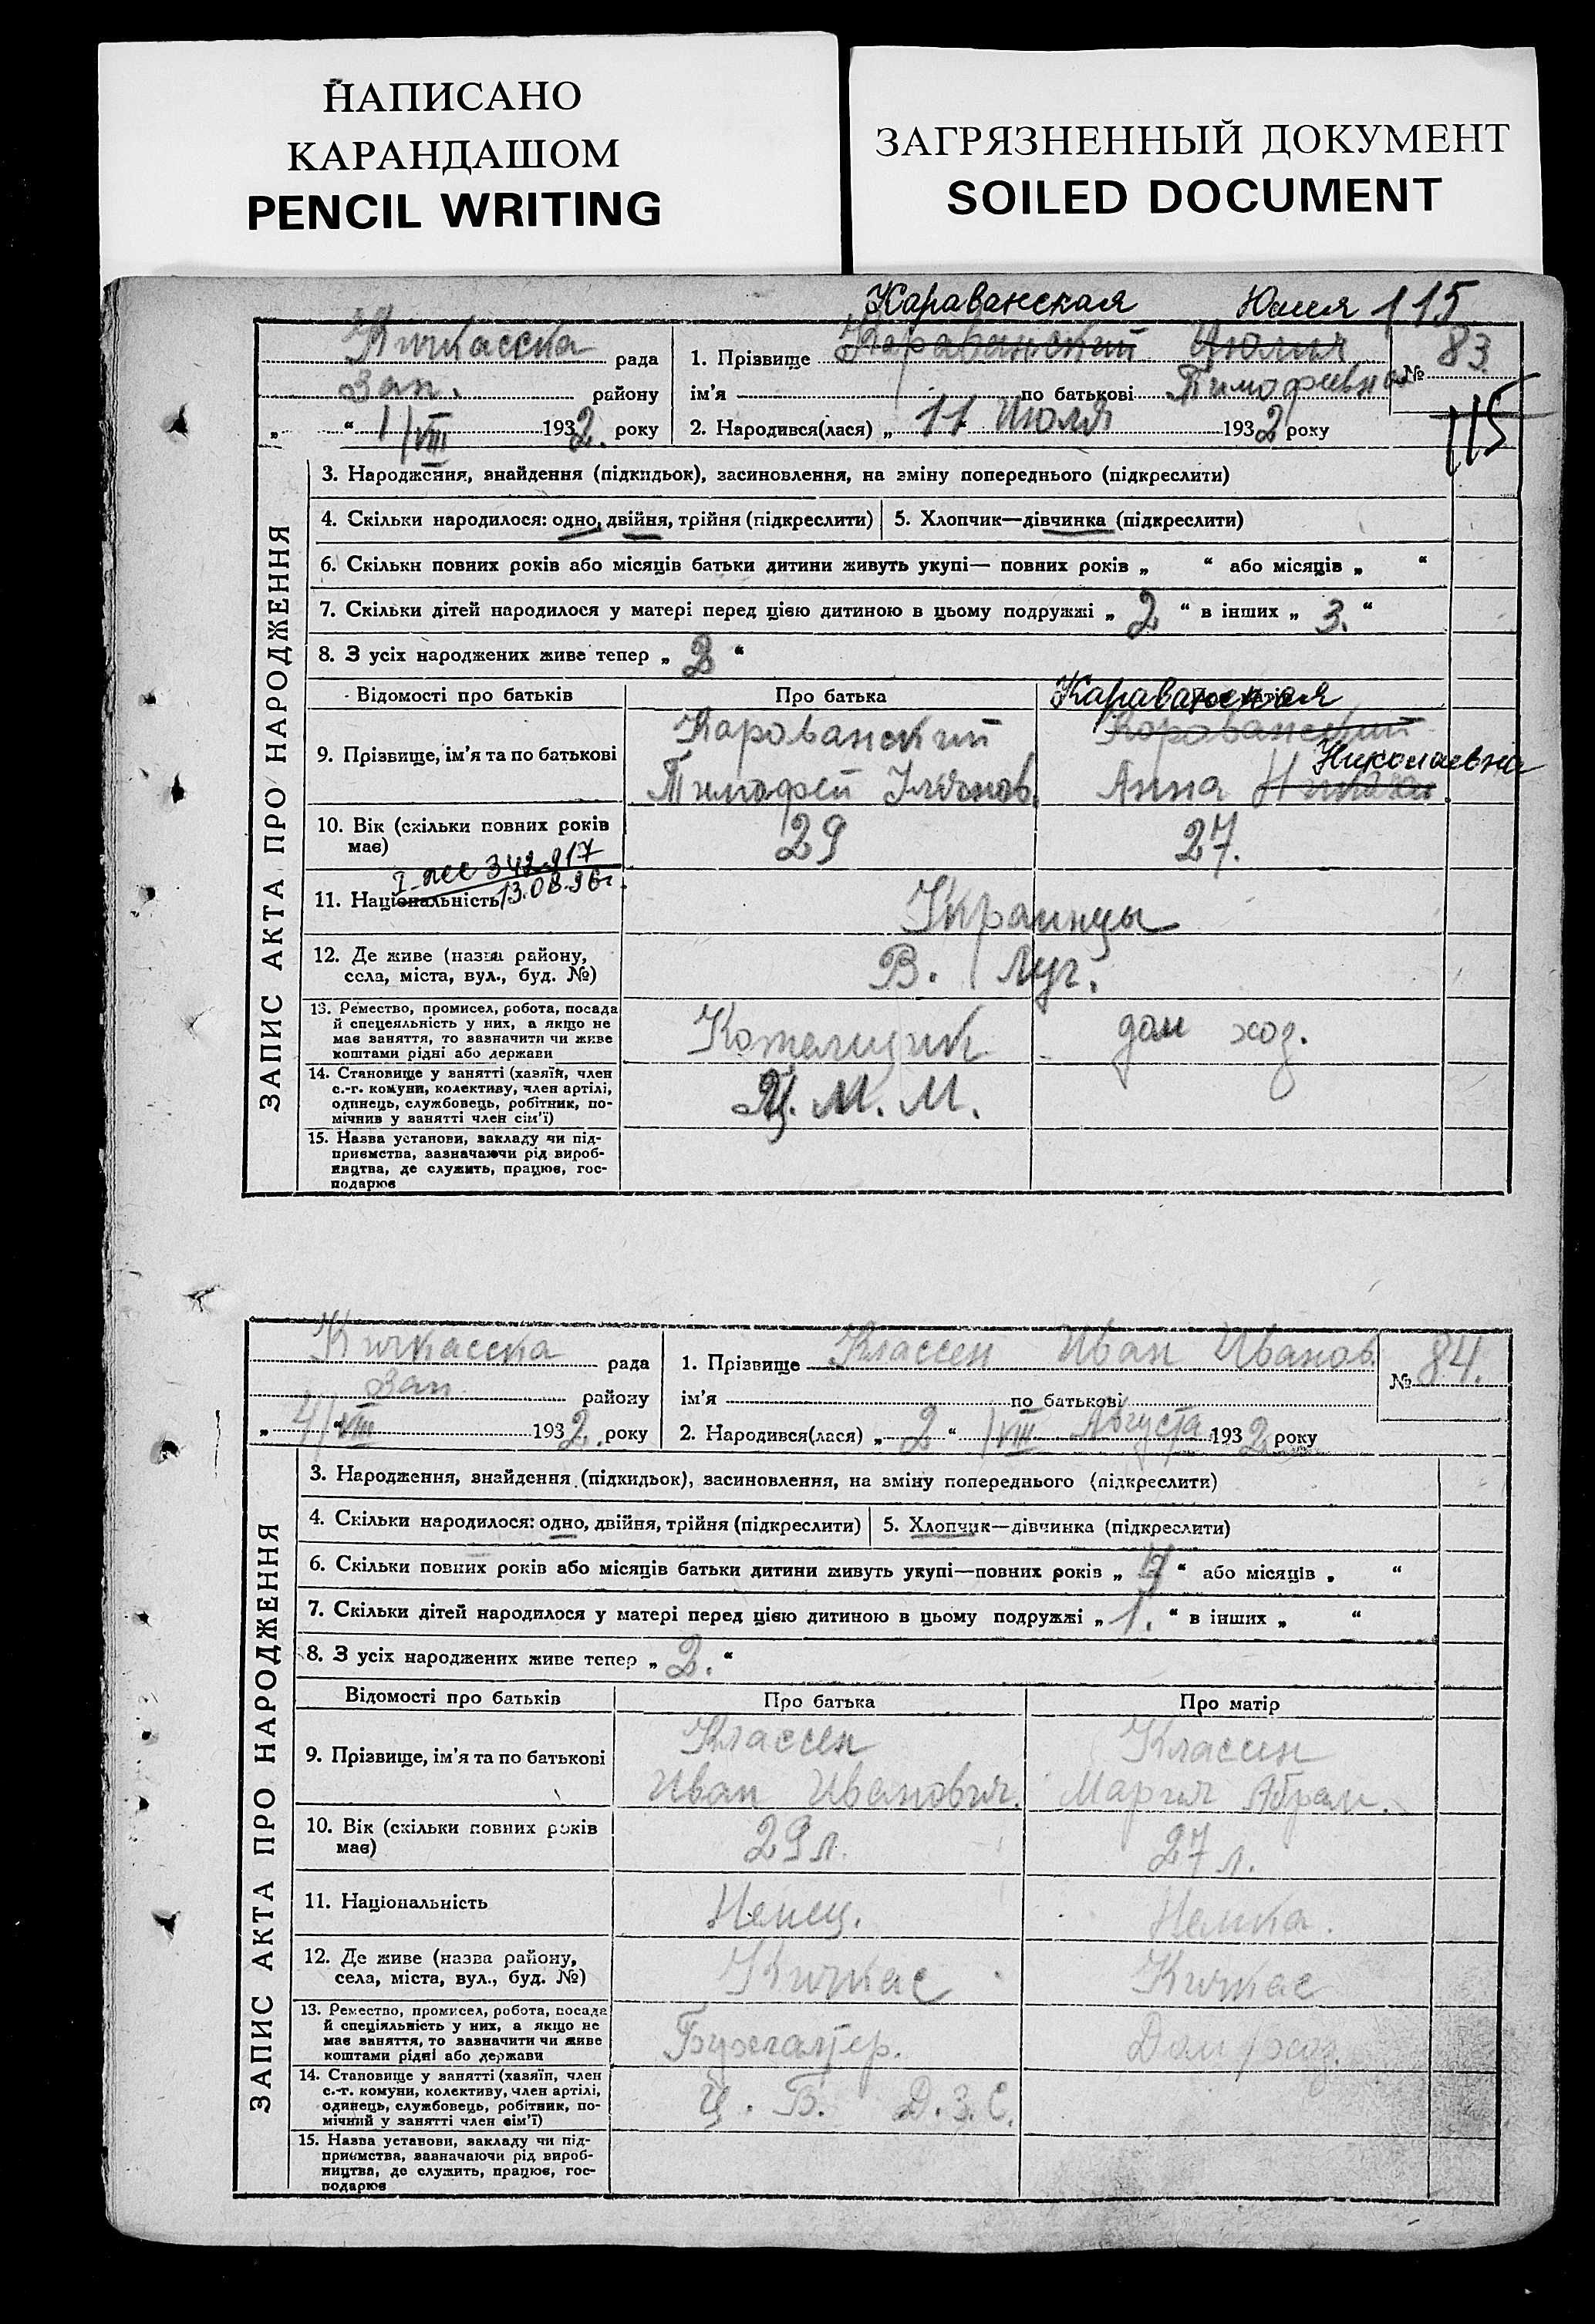 НАПИСАНО
КАРАНДАШОМ
PENCIL WRITING
ЗАГРЯЗНЕННЫЙ ДОКУМЕНТ
SOILED DOCUMENT
Караванская Юлия 115
ЗАПИС АКТА ПРО НАРОДЖЕННЯ
Кичкасска рада
Зап. району
„ “ 1/VIII 1932. року
1. Прізвище Караванский Июлия
ім'я по батькові Тимофеевна
2. Народився(лася) „ 11 Июля 1932 року
№ 83
115
3. Народження, знайдення (підкидьок), засиновлення, на зміну попереднього (підкреслити)
4. Скільки народилося: одно, двійня, трійня (підкреслити) 5. Хлопчик—дівчинка (підкреслити)
6. Скільки повних років або місяців батьки дитини живуть укупі— повних років „ “ або місяців „ “
7. Скільки дітей народилося у матері перед цією дитиною в цьому подружжі „ 2 “ в інших „ 3. “
8. З усіх народжених живе тепер „ 2 “
Відомості про батьків Про батька Караванская
9. Прізвище, ім'я та по батькові
Карованский Корованский
Тимофей Анна Николаевна
10. Вік (скільки повних років має) 29 27.
342917
13.08.96г.
11. Національність Украинцы
12. Де живе (назва району, села, міста, вул., буд. №) В. Луг.
13. Ремество, промисел, робота, посада
й спецеяльність у них, а якщо не
має заняття, то зазначити чи живе
коштами рідні або держави
Котельщик дом хоз.
14. Становище у занятті (хазяїн, член
с.-г. комуни, колективу, член артілі,
одинець, службовець, робітник, по-
мічник у занятті член сім'ї)
М. М.
15. Назва установи, закладу чи під-
приємства, зазначаючи рід вироб-
ництва, де служить, працює, гос-
подарює
ЗАПИС АКТА ПРО НАРОДЖЕННЯ
Кичкасска рада
Зап. району
„ 4/VIII 1932. року
1. Прізвище Классен Иван Иванов.
ім'я по батькові
2. Народився(лася) „ 2 “ VIII Августа 1932 року
№ 84.
3. Народження, знайдення (підкидьок), засиновлення, на зміну попереднього (підкреслити)
4. Скільки народилося: одно, двійня, трійня (підкреслити) 5. Хлопчик—дівчинка (підкреслити)
6. Скільки повних років або місяців батьки дитини живуть укупі—повних років „ “ або місяців „ “
7. Скільки дітей народилося у матері перед цією дитиною в цьому подружжі „ 1. “ в інших „ “
8. З усіх народжених живе тепер „ 2. “
Відомості про батьків Про батька Про матір
9. Прізвище, ім'я та по батькові
Классен Классен
Иван Иванович. Мария Абрам.
10. Вік (скільки повних років має) 29 л. 27 л.
11. Національність Немец. Немка.
12. Де живе (назва району, села, міста, вул., буд. №) Кичкас Кичкас
13. Ремество, промисел, робота, посада
й спеціяльність у них, а якщо не
має заняття, то зазначити чи живе
коштами рідні або держави
Бухгалтер. Дом хоз.
14. Становище у занятті (хазяїн, член
с.-г. комуни, колективу, член артілі,
одинець, службовець, робітник, по-
мічний у занятті член сім'ї)
Ц. Б. Д.З.С.
15. Назва установи, закладу чи під-
приємства, зазначаючи рід вироб-
ництва, де служить, працює, гос-
подарює